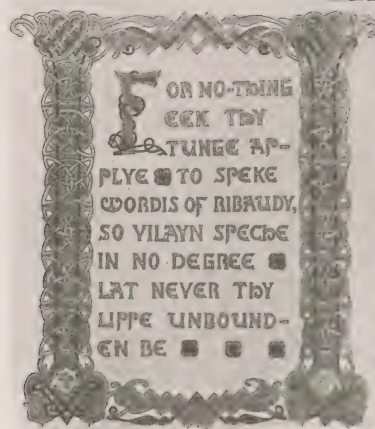 FOR NO-THING
EEK THY
TUNGE AP-
PLYE TO SPEKE
WORDIS OF RIBAUDY,
SO VILAYN SPECHE
IN NO DEGREE
LAT NEVER THY
LIPPE UNBOUND-
EN BE